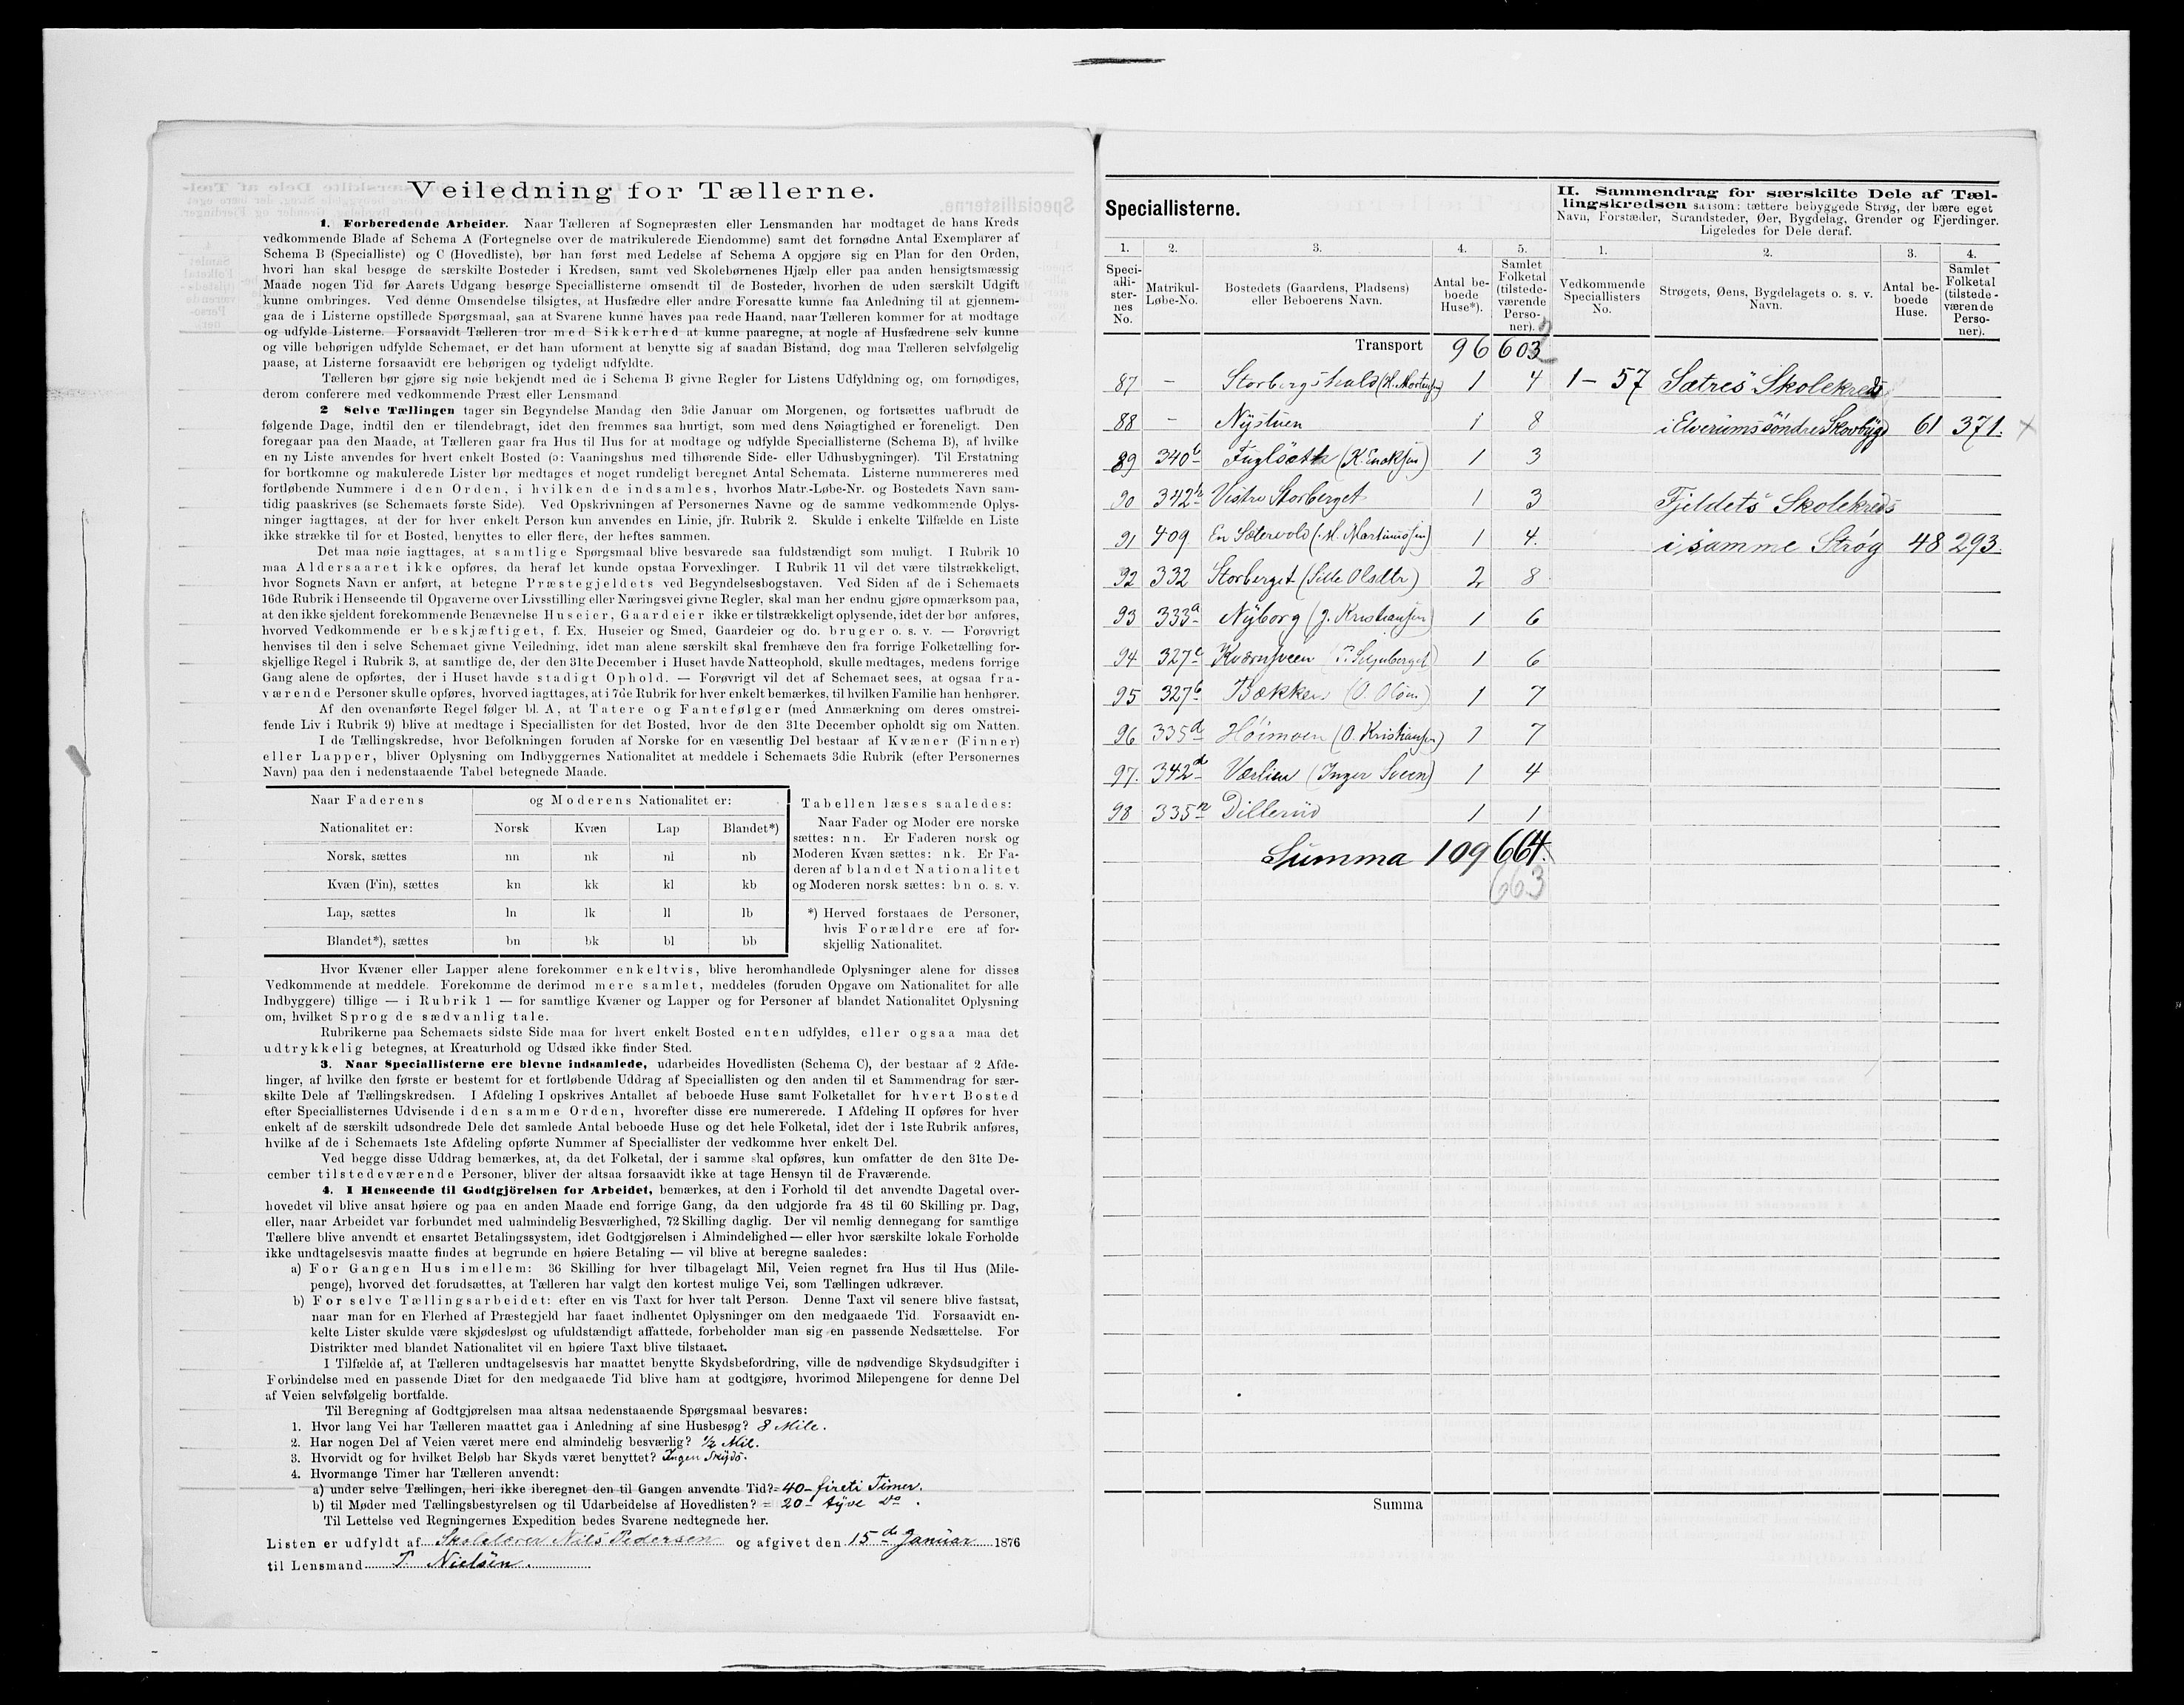 Veiledning for Tællerne.
1. Forberedende Arbeider. Naar Tælleren af Sognepræsten eller Lensmanden har modtaget de hans Kreds
vedkommende Blade af Schema A (Fortegnelse over de matrikulerede Eiendomme) samt det fornødne Antal Exemplarer af
Schema B (Specialliste) og C (Hovedliste), bør han først med Ledelse af Schema A opgjøre sig en Plan for den Orden,
hvori han skal besøge de særskilte Bosteder i Kredsen, samt ved Skolebørnenes Hjælp eller paa anden hensigtsmæssig
Maade nogen Tid før Aarets Udgang besørge Speciallisterne omsendt til de Bosteder, hvorhen de uden særskilt Udgift
kunne ombringes. Ved denne Omsendelse tilsigtes, at Husfædre eller andre Foresatte kunne faa Anledning til at gjennem-
gaa de i Listerne opstillede Spørgsmaal, saa at Svarene kunne haves paa rede Haand, naar Tælleren kommer for at modtage
og udfylde Listerne. Forsaavidt Tælleren tror med Sikkerhed at kunne paaregne, at nogle af Husfædrene selv kunne
og ville behørigen udfylde Schemaet, er det ham uforment at benytte sig af saadan Bistand, dog maa Tælleren selvfølgelig
paase, at Listerne forsaavidt ere behørigen og tydeligt udfyldte.
Tælleren bør gjøre sig nøie bekjendt med de i Schema B givne Regler for Listens Udfyldning og, om fornødiges,
derom conferere med vedkommende Præst eller Lensmand
2 Selve Tællingen tager sin Begyndelse Mandag den 3die Januar om Morgenen, og fortsættes uafbrudt de
følgende Dage, indtil den er tilendebragt, idet den fremmes saa hurtigt, som med dens Nøiagtighed er foreneligt. Den
foregaar paa den Maade, at Tælleren gaar fra Hus til Hus for at modtage og udfylde Speciallisterne (Schema B), af hvilke
en ny Liste anvendes for hvert enkelt Bosted (ɔ: Vaaningshus med tilhørende Side- eller Udhusbygninger). Til Erstatning
for bortkomne og makulerede Lister bør medtages et noget rundeligt beregnet Antal Schemata. Listerne nummereres med
fortløbende Nummere i den Orden, i hvilken de indsamles, hvorhos Matr.-Løbe-Nr. og Bostedets Navn sam-
tidig paaskrives (se Schemaets første Side). Ved Opskrivningen af Personernes Navne og de samme vedkommende Oplys-
ninger iagttages, at der for hver enkelt Person kun anvendes en Linie, jfr. Rubrik 2. Skulde i enkelte Tilfælde en Liste
ikke strække til for et Bosted, benyttes to eller flere, der heftes sammen.
Det maa nøie iagttages, at samtlige Spørgsmaal blive besvarede saa fuldstændigt som muligt. I Rubrik 10
maa Aldersaaret ikke opføres, da heraf let kunde opstaa Forvexlinger. I Rubrik 11 vil det være tilstrækkeligt,
hvor Sognets Navn er anført, at betegne Præstegjeldets ved Begyndelsesbogstaven. Ved Siden af de i Schemaets
16de Rubrik i Henseende til Opgaverne over Livsstilling eller Næringsvei givne Regler, skal man her endnu gjøre opmærksom paa,
at den ikke sjeldent forekommende Benævnelse Huseier, Gaardeier ikke er tilstrækkeligt oplysende, idet der bør anføres,
hvorved Vedkommende er beskjæftiget, f. Ex. Huseier og Smed, Gaardeier og do. bruger o. s. v. — Forøvrigt
henvises til den i selve Schemaet givne Veiledning, idet man alene særskilt skal fremhæve den fra forrige Folketælling for-
skjellige Regel i Rubrik 3, at samtlige de, der den 31te December i Huset havde Natteophold, skulle medtages, medens forrige
Gang alene de opførtes, der i Huset havde stadigt Ophold. — Forøvrigt vil det af Schemaet sees, at ogsaa fra-
værende Personer skulle opføres, hvorved iagttages, at i 7de Rubrik for hver enkelt bemærkes, til hvilken Familie han henhører.
Af den ovenanførte Regel følger bl. A, at Tatere og Fantefølger (med Anmærkning om deres omstrei-
fende Liv i Rubrik 9) blive at medtage i Speciallisten for det Bosted, hvor de den 31te December opholdt sig om Natten.
I de Tællingskredse, hvor Befolkningen foruden af Norske for en væsentlig Del bestaar af Kvæner (Finner)
eller Lapper, bliver Oplysning om Indbyggernes Nationalitet at meddele i Schemaets 3die Rubrik (efter Personernes
Navn) paa den i nedenstaaende Tabel betegnede Maade.
Naar Faderens og Moderens Nationalitet er:
Nationalitet er: Norsk Kvæn Lap Blandet*)
Norsk, sættes nn nk nl nb
Kvæn (Fin), sættes kn kk kl kb
Lap, sættes ln lk ll lb
Blandet*), sættes bn bk bl bb
Tabellen læses saaledes:
Naar Fader og Moder ere norske
sættes: nn. Er Faderen norsk og
Moderen Kvæn sættes: nk. Er Fa-
deren af blandet Nationalitet
og Moderen norsk sættes: bn o. s. v.
*) Herved forstaaes de Personer,
hvis Forældre ere af for-
skjellig Nationalitet.
Hvor Kvæner eller Lapper alene forekommer enkeltvis, blive heromhandlede Oplysninger alene for disses
Vedkommende at meddele. Forekomme de derimod mere samlet, meddeles (foruden Opgave om Nationalitet for alle
Indbyggere) tillige — i Rubrik 1 — for samtlige Kvæner og Lapper og for Personer af blandet Nationalitet Oplysning
om, hvilket Sprog de sædvanlig tale.
Rubrikerne paa Schemaets sidste Side maa for hvert enkelt Bosted enten udfyldes, eller ogsaa maa det
udtrykkelig betegnes, at Kreaturhold og Udsæd ikke finder Sted.
3. Naar Speciallisterne ere blevne indsamlede, udarbeides Hovedlisten (Schema C), der bestaar af 2 Afde-
linger, af hvilke den første er bestemt for et fortløbende Uddrag af Speciallisten og den anden til et Sammendrag for sær-
skilte Dele af Tællingskredsen. I Afdeling I opskrives Antallet af beboede Huse samt Folketallet for hvert Bosted
efter Speciallisternes Udvisende i den samme Orden, hvorefter disse ere numererede. I Afdeling II opføres for hver
enkelt af de særskilt udsondrede Dele det samlede Antal beboede Huse og det hele Folketal, idet der i 1ste Rubrik anføres,
hvilke af de i Schemaets 1ste Afdeling opførte Nummer af Speciallister der vedkomme hver enkelt Del.
Ved begge disse Uddrag bemærkes, at, da det Folketal, der i samme skal opføres, kun omfatter de den 31te De-
cember tilstedeværende Personer, bliver der altsaa forsaavidt ikke at tage Hensyn til de Fraværende.
4. I Henseende til Godtgjörelsen for Arbeidet, bemærkes, at den i Forhold til det anvendte Dagetal over-
hovedet vil blive ansat høiere og paa en anden Maade end forrige Gang, da den udgjorde fra 48 til 60 Skilling pr. Dag,
eller, naar Arbeidet var forbundet med ualmindelig Besværlighed, 72 Skilling daglig. Der vil nemlig dennegang for samtlige
Tællere blive anvendt et ensartet Betalingssystem, idet Godtgjørelsen i Almindelighed — eller hvor særskilte lokale Forholde
ikke undtagelsesvis maatte findes at begrunde en høiere Betaling — vil blive at beregne saaledes:
a) For Gangen Hus imellem: 36 Skilling for hver tilbagelagt Mil, Veien regnet fra Hus til Hus (Mile-
penge), hvorved det forudsættes, at Tælleren har valgt den kortest mulige Vei, som Tællingen udkræver.
b) For selve Tællingsarbeidet: efter en vis Taxt for hver talt Person. Denne Taxt vil senere blive fastsat,
naar man for en Flerhed af Præstegjeld har faaet indhentet Oplysninger om den medgaaede Tid. Forsaavidt en-
kelte Lister skulde være skjødesløst og ufuldstændigt affattede, forbeholder man sig en passende Nedsættelse. For
Distrikter med blandet Nationalitet vil en høiere Taxt blive tilstaaet.
I Tilfælde af, at Tælleren undtagelsesvis har maattet benytte Skydsbefordring, ville de nødvendige Skydsudgifter i
Forbindelse med en passende Diæt for den medgaaede Tid blive ham at godtgjøre, hvorimod Milepengene for denne Del
af Veien selvfølgelig bortfalde.
Til Beregning af Godtgjørelsen maa altsaa nedenstaaende Spørgsmaal besvares:
1. Hvor lang Vei har Tælleren maattet gaa i Anledning af sine Husbesøg? 8 Mile.
2. Har nogen Del af Veien været mere end almindelig besværlig? ½ Mil.
3. Hvorvidt og for hvilket Beløb har Skyds været benyttet? Ingen Skyds.
4. Hvormange Timer har Tælleren anvendt:
a) under selve Tællingen, heri ikke iberegnet den til Gangen anvendte Tid? = 40 – fireti Timer.
b) til Møder med Tællingsbestyrelsen og til Udarbeidelse af Hovedlisten? = 20 – tyve Do.
Til Lettelse ved Regningernes Expedition bedes Svarene nedtegnede her.
Listen er udfyldt af Skolelærer Nils Pedersen og afgivet den 15de Januar 1876
til Lensmand T. Nielsen.
Speciallisterne.
1. 2. 3. 4. 5.
Speci-alli-ster-nes No. Matrikul-Løbe-No. Bostedets (Gaardens, Pladsens) eller Beboerens Navn. Antal be-boede Huse*). Samlet Folketal (tilstede-værende Perso-ner).
Transport 96 603 2
87 – Storbergshald (H. Mortensen) 1 4
88 – Nystuen 1 8
89 340b Fuglsæth (K. Enoksen) 1 3
90 342b Vistre Storberget 1 3
91 409 En Sætervold (M. Martinussen) 1 4.
92 332 Storberget (Sille Olsdtr) 2 8
93 333a Nyborg (J. Kristiansen) 1 6
94 327c Kværnsveen 1 6
95 327b Bækken (O. Olsen) 1 7
96 335d Høimoen (O. Kristiansen) 1 7
97. 342d Værlien (Inger Sveen) 1 4
98 335n Dillerud 1 1
Summa 109 664.
663
Summa
II. Sammendrag for særskilte Dele af Tæl-
lingskredsen saasom: tættere bebyggede Strøg, der bære eget
Navn, Forstæder, Strandsteder, Øer, Bygdelag, Grender og Fjerdinger.
Ligeledes for Dele deraf.
1. 2. 3. 4.
Vedkommende Speciallisters No. Strøgets, Øens, Bygdelagets o. s. v. Navn. Antal be-boede Huse. Samlet Folketal (tilstede-værende Perso-ner).
1 – 57 Sætres Skolekreds
i Elverums søndre Skovbygd 61 371. ×
Fjeldets Skolekreds
i samme Strøg 48 293.